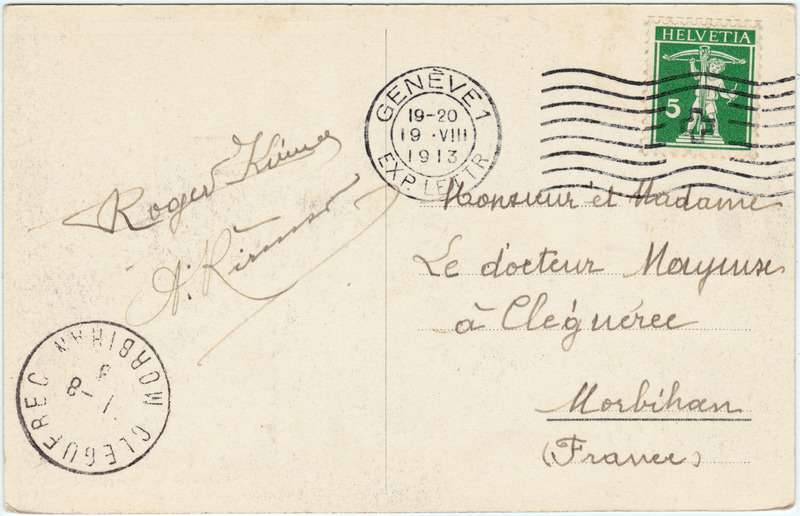 HELVETIA
5
GENÈVE 1
19-20
19 ·VIII
1913
EXP. LETTR.
Roger
A.
Monsieur et Madame
Le docteur
à Cléguérec
Morbihan
(France)
CLEGUEREC MORBIHAN